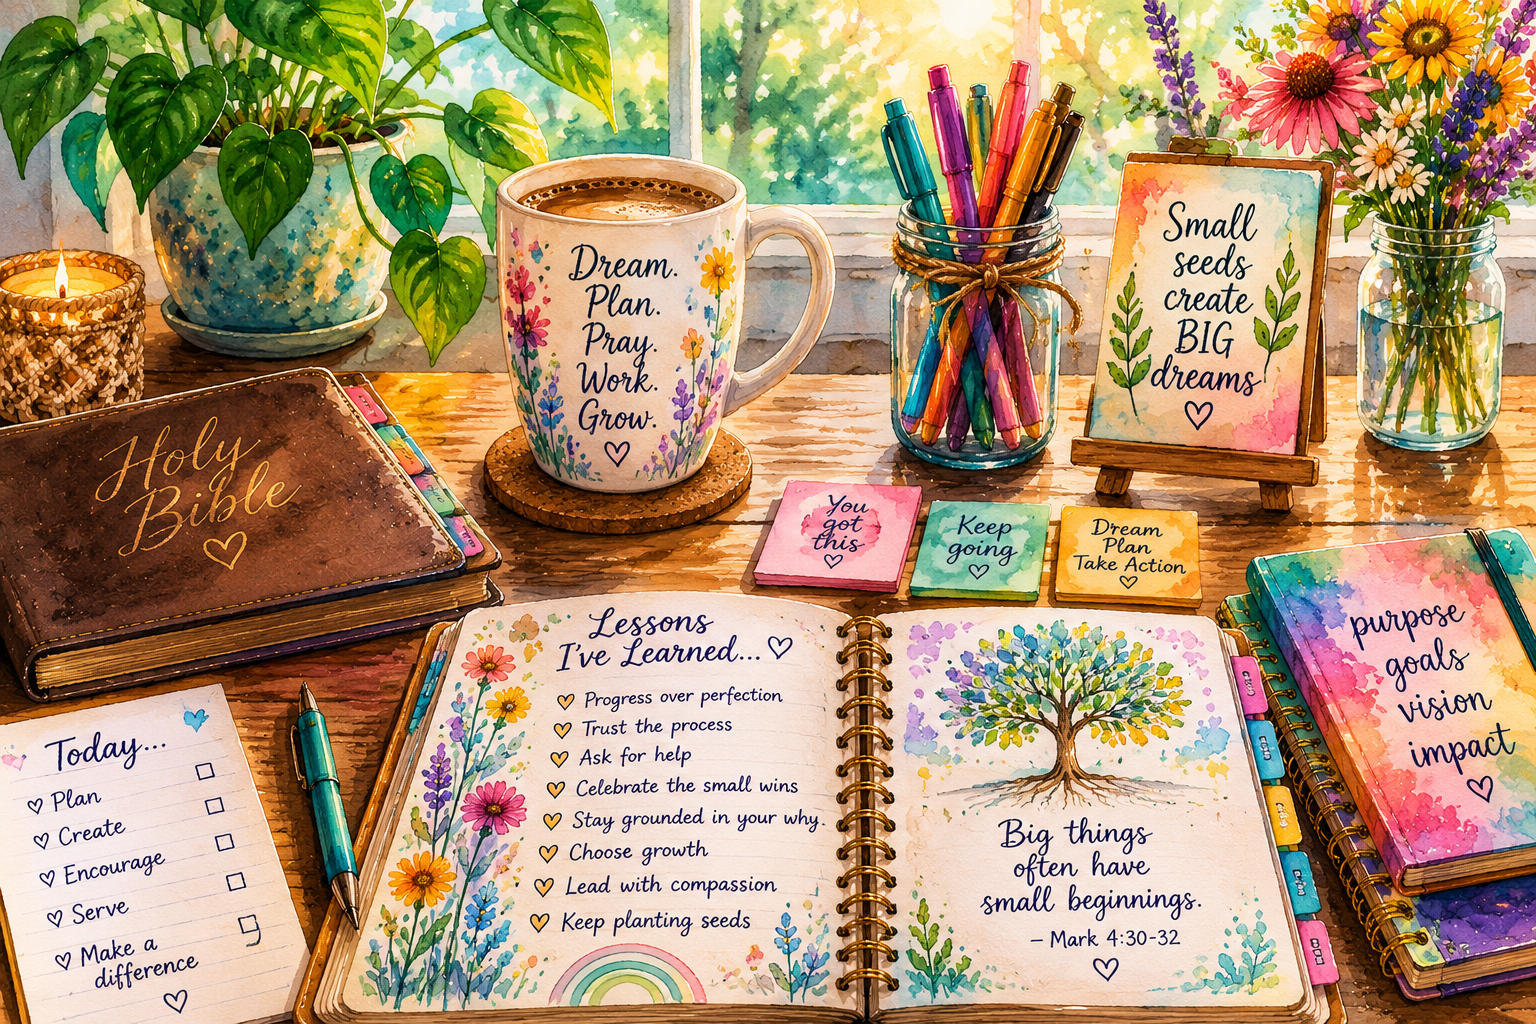 Dream.
Plan.
Pray.
Work.
Grow.
Small
seeds
create
BIG
dreams
Holy
Bible
You
got
this
Keep
going
Dream
Plan
Take Action
purpose
goals
vision
impact
Today...
Plan
Create
Encourage
Serve
Make a
difference
Lessons
I've Learned...
Progress over perfection
Trust the process
Ask for help
Celebrate the small wins
Stay grounded in your why.
Choose growth
Lead with compassion
Keep planting seeds
Big things
often have
small beginnings.
– Mark 4:30-32